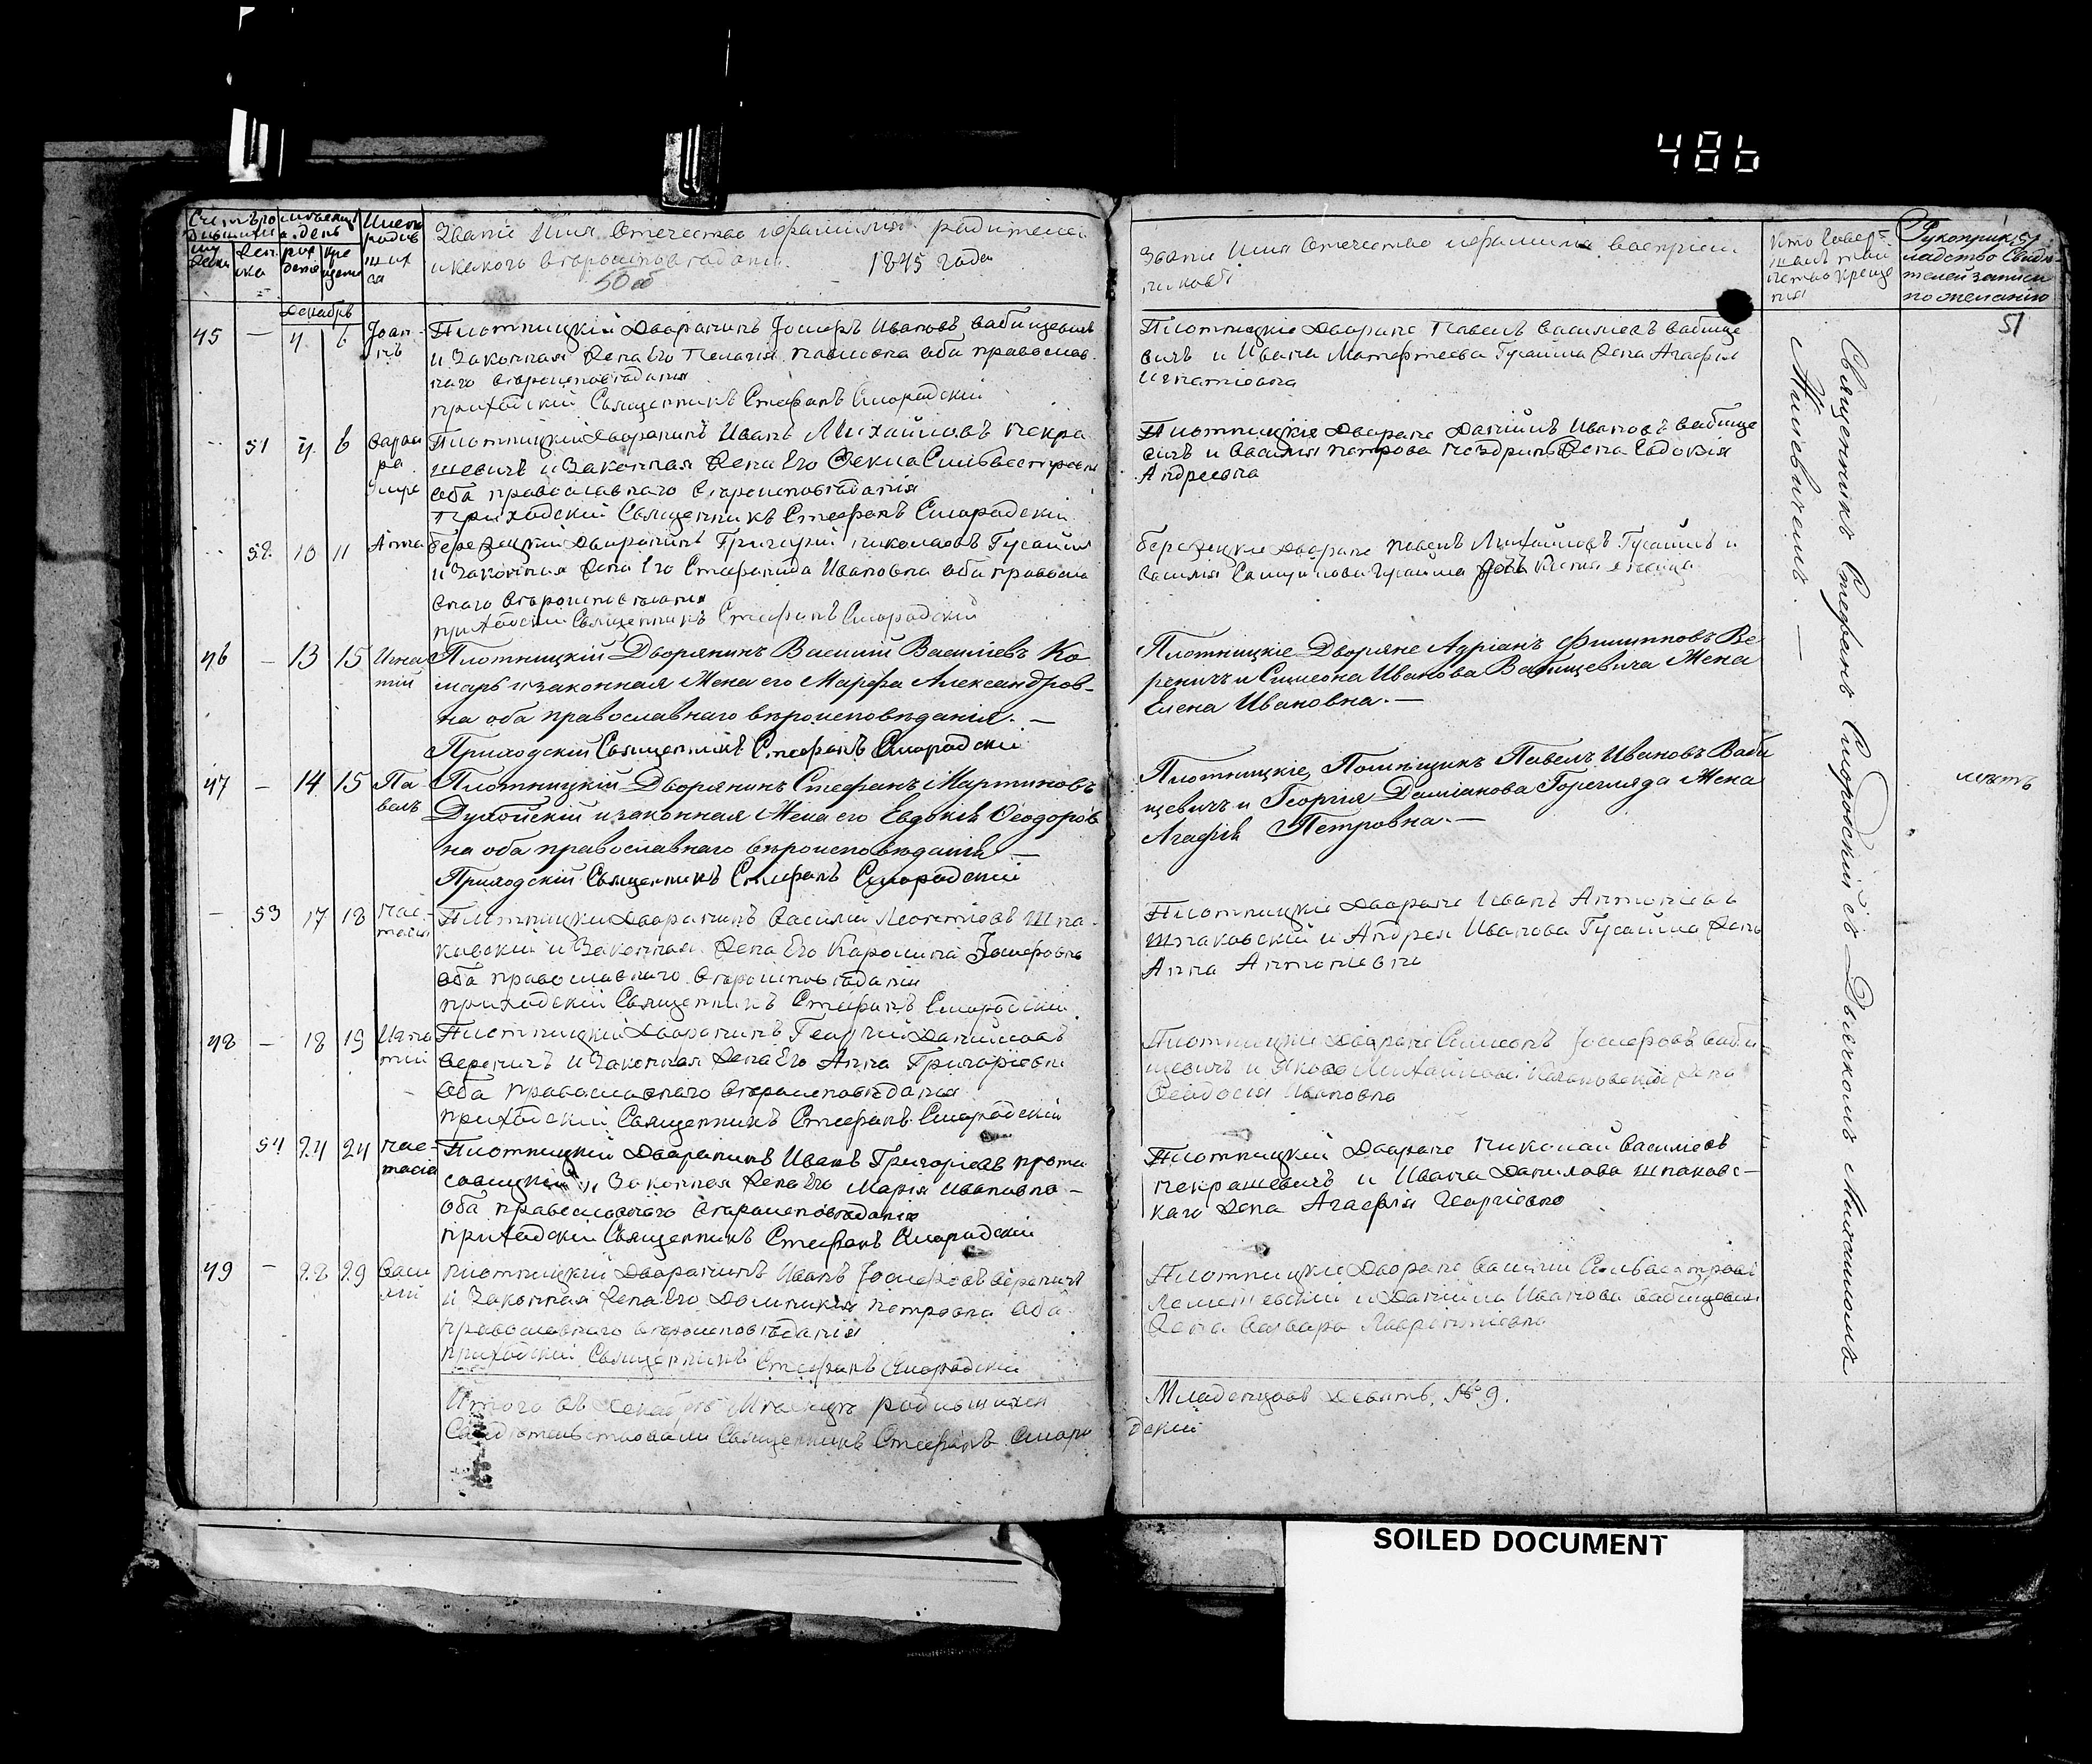 486
Счетъ родившихся
Мѣсяцъ и день
Имена родившихся
Званіе Имя Отечество и фамилия родителей
и какого вѣроисповѣданія. 1845 года
50 об
Званіе Имя Отечество и фамилия воспріем
никовъ
Кто совер
шалъ таи
нство креще
нія
Рукоприк
ладство свидѣ
телей записи
по желанію
51
муж
жен
рож
кре
Декабрь
45 — 4 6 Іоан
нъ
Плотницкій Дворанинъ Іосифъ Ивановъ Вабищевичъ
и Законная Жена Его Пелагія Павловна оба православ
наго вѣроисповѣданія
приходскій Священникъ Стефанъ Смородскій
Плотницкіе Дворане Павелъ Василіевъ Вабище
вичъ и Ивана Матфѣева Гусаима Жена Агафія
Игнатіовна
51 4 6 Варва
ра
Плотницкій Дворанинъ Иванъ Михайловъ Некра
шевичъ и Законная Жена Его Фекла Сильвестровна
оба православнаго вѣроисповѣданія
Приходскій Священникъ Стефанъ Смородскій
Плотницкіе Дворане Даніилъ Ивановъ Вабище
вичъ и Василія Петрова Жена Евдокія
Андреевна
52 10 11 Анна
Бережецкій Дворанинъ Григорій Николаевъ Гусаимъ
и Законная Жена Его Стефанида Ивановна оба правосла
внаго вѣроисповѣданія
приходскій Священникъ Стефанъ Смородскій
Бережецкіе Дворане Павелъ Михайловъ Гусаимъ и
Василія Гусаима
46 — 13 15 Игна
тій
Плотницкій Дворянинъ Василій Василіевъ Ко
маръ и законная Жена его Марфа Александров-
на оба православнаго вѣроисповѣданія. —
Приходскій Священникъ Стефанъ Смородскій
Плотницкіе Дворяне Адріанъ Филипповъ Ве
реничъ и Симеона Иванова Вабищевича Жена
Елена Ивановна. —
47 — 14 15 Па
велъ
Плотницкій Дворянинъ Стефанъ Мартиновъ
Духойскій и законная Жена его Евдокія Ѳеодоров
на оба православнаго вѣроисповѣданія —
Приходскій Священникъ Стефанъ Смородскій
Плотницкіе, Помѣщикъ Павелъ Ивановъ Ваби
щевичъ и Георгія Даміанова Горегляда Жена
Агафія Петровна. —
— 53 17 18 Нас-
тасія
Плотницкій Дворанинъ Василій Леонтіовъ Шпа-
ковскій и Законная Жена Его Каролина Іосифовна
оба православнаго вѣроисповѣданія
приходскій Священникъ Стефанъ Смородскій
Плотницкіе Дворане Иванъ Антоніевъ
Шпаковскій и Андрея Иванова Гусаима Жена
Анна Антоніевна
48 — 18 19 Игна
тій
Плотницкій Дворанинъ Георгій Даніиловъ
Вереничъ и Законная Жена Его Анна Григоріевна
оба православнаго вѣроисповѣданія
приходскій Священникъ Стефанъ Смородскій
Плотницкіе Дворане Симеонъ Іосифовъ Ваби
щевичъ и Якова Михайлова Жена
Ѳеодосія Ивановна
54 24 24 Нас-
тасія
Плотницкій Дворанинъ Иванъ Григоріевъ Прота
совицкій и Законная Жена Его Марія Ивановна —
оба православнаго вѣроисповѣданія
приходскій Священникъ Стефанъ Смородскій
Плотницкій Дворане Николай Василіевъ
Некрашевичъ и Ивана Данилова Шпаковс-
каго Жена Агафія Георгіовна
49 — 28 29 Васи
лій
Плотницкій Дворанинъ Иванъ Іосифовъ Вереничъ
и Законная Жена Его Доминикія Петровна оба
православнаго вѣроисповѣданія
приходскій Священникъ Стефанъ Смородскій
Плотницкіе Дворане Василій Сильвестровъ
и Даніила Иванова Вабищевича
Жена Варвара Лаврентіевна
Священникъ Стефанъ Смородскій съ Дьячкомъ Михаиломъ
Жилевичемъ. —
нѣтъ
Итого въ Декабрѣ Мѣсяцѣ родившихся
Младенцовъ Девять, № 9.
Свидѣтельствовали Священникъ Стефанъ Сморо
дскій
SOILED DOCUMENT